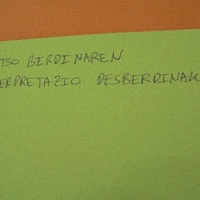 TSO BERDINAREN
ERPRETAZIO DESBERDINAK